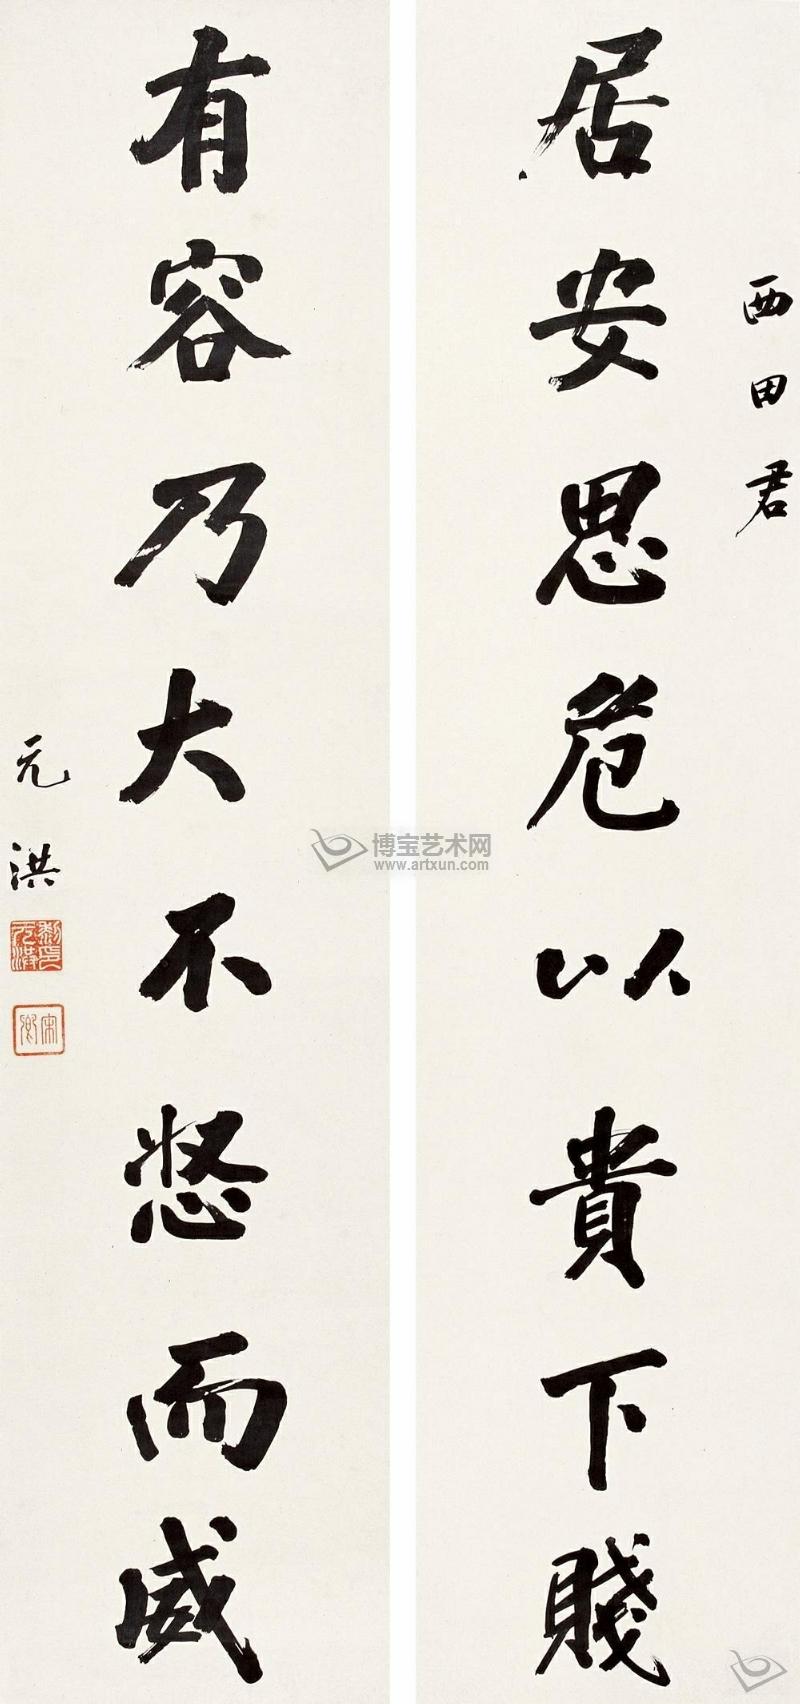 西田君
居安思危以貴下賤
有容乃大不怒而威
元洪
黎元洪印
宋卿
博宝艺术网
www.artxun.com